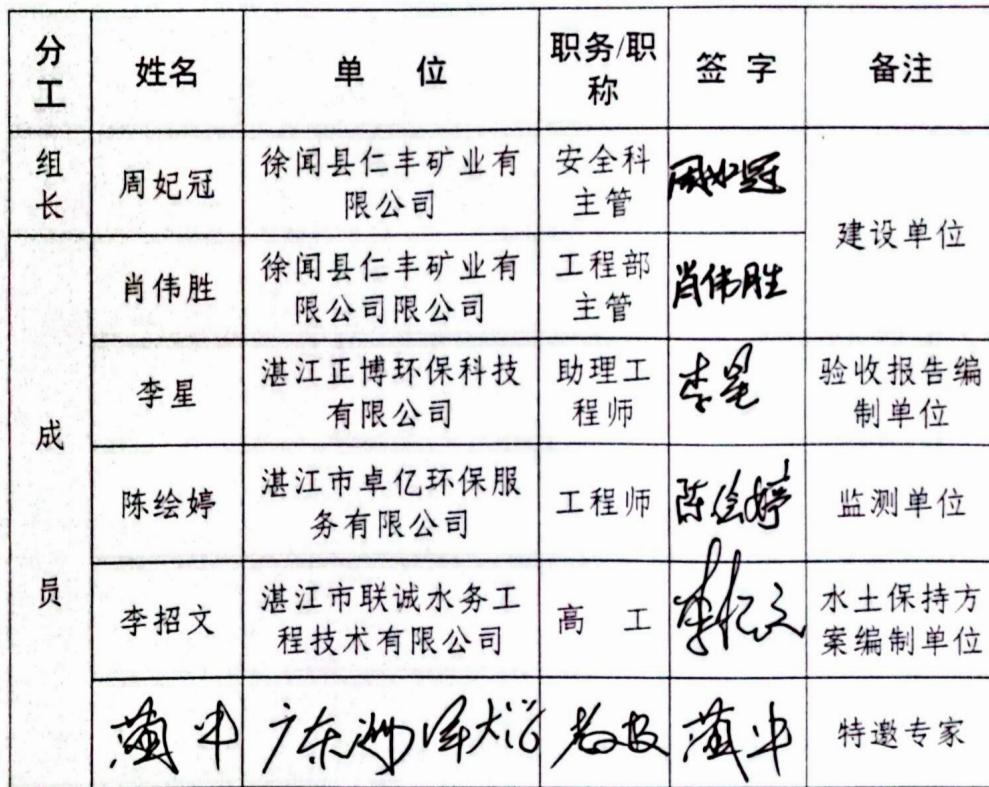 分工 姓名 单 位 职务/职称 签 字 备注
组长 周妃冠 徐闻县仁丰矿业有限公司 安全科主管 周妃冠 建设单位
成员 肖伟胜 徐闻县仁丰矿业有限公司限公司 工程部主管 肖伟胜
李星 湛江正博环保科技有限公司 助理工程师 李星 验收报告编制单位
陈绘婷 湛江市卓亿环保服务有限公司 工程师 陈绘婷 监测单位
李招文 湛江市联诚水务工程技术有限公司 高 工 李招文 水土保持方案编制单位
广东海洋大学 教授 特邀专家